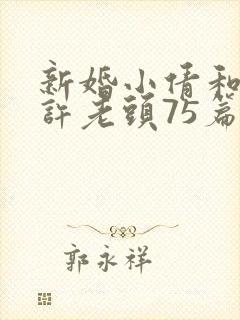 新婚小倩和
許老頭75篇
郭永祥